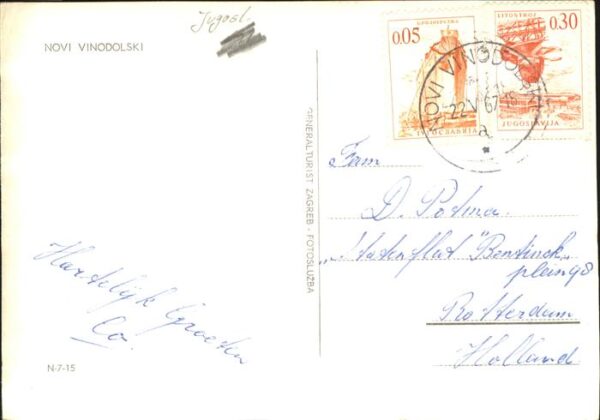 Jugosl.
NOVI VINODOLSKI
0.05
ЈУГОСЛАВИЈА
LITOSTROJ
0.30
JUGOSLAVIJA
NOVI VINODOLSKI
22 V 67-15
a
GENERALTURIST ZAGREB - FOTOSLUŽBA
Fam
D. Postma.
„Statenflat" Bentinck
plein 98
Rotterdam
Holland
Hartelijk Groeten
Co.
N-7-15